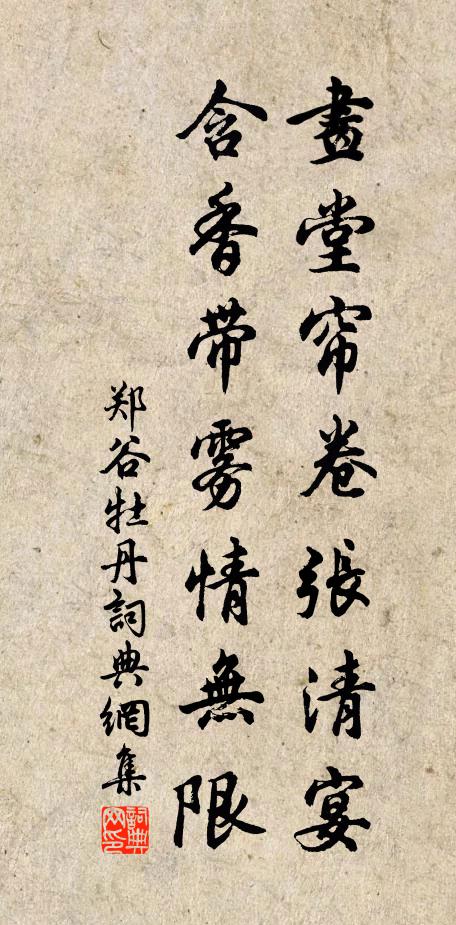 畫堂帘卷張清宴
含香带雾情無限
郑谷牡丹詞典網集
詞典網印